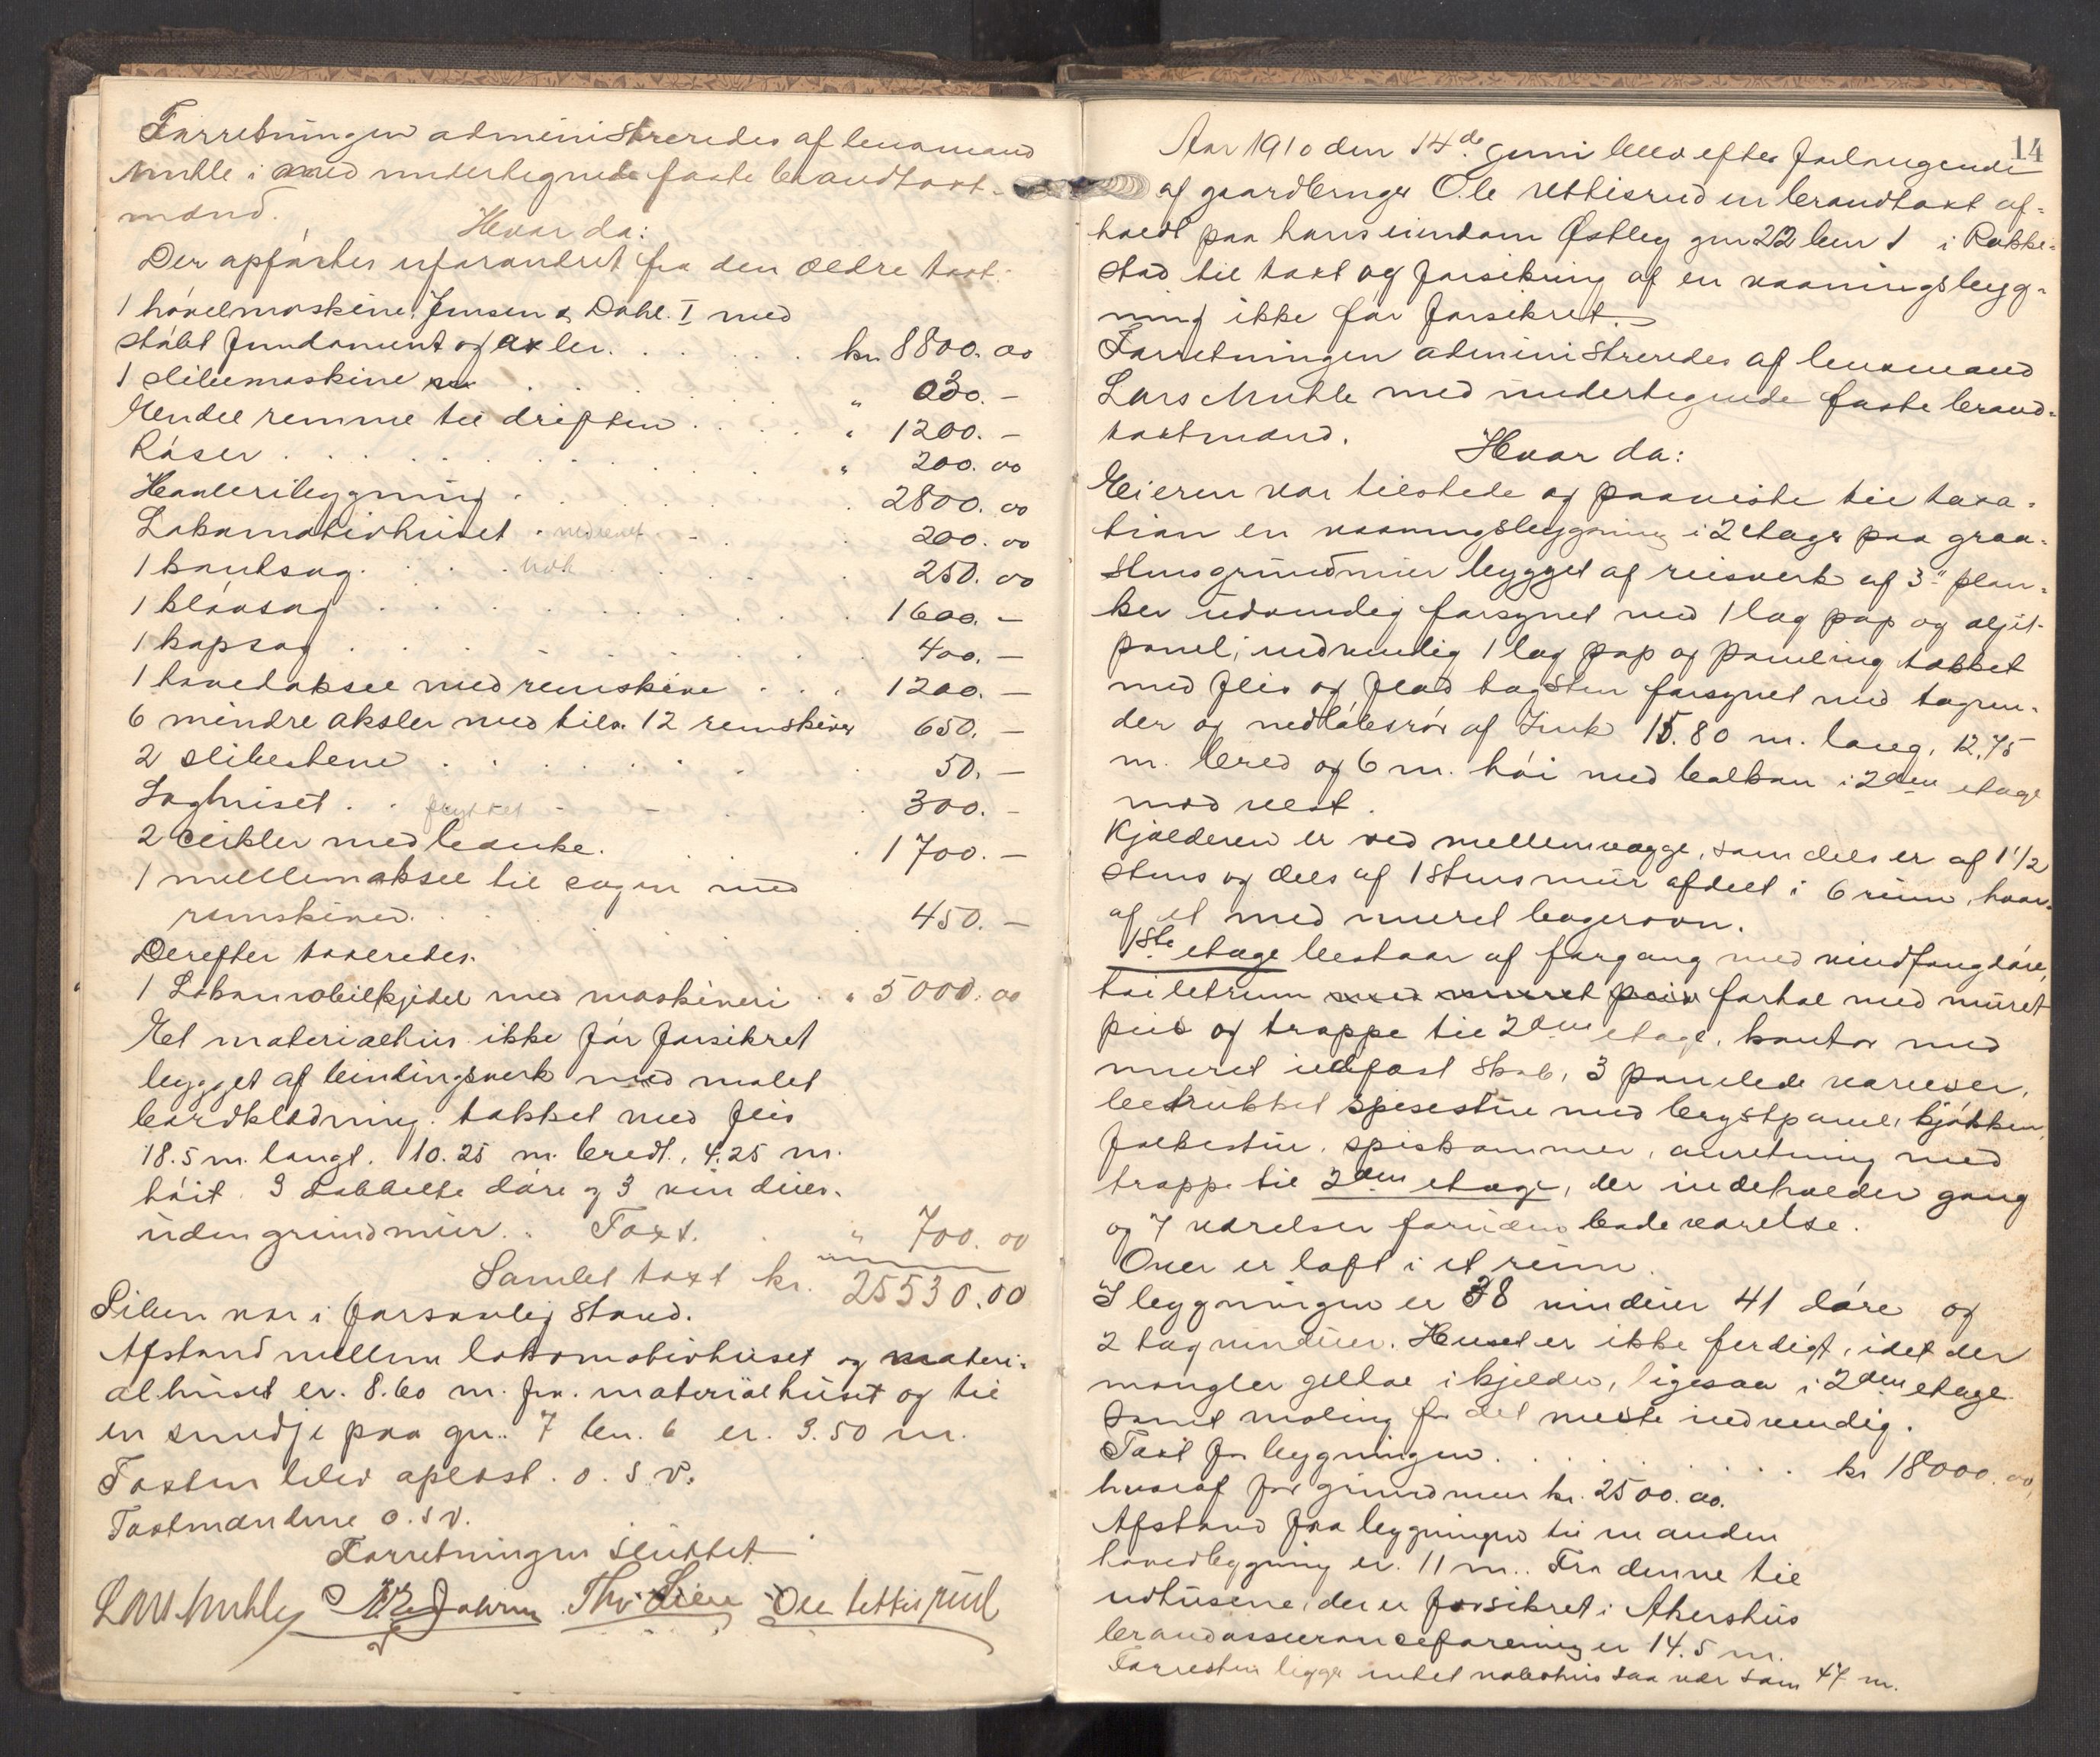 Forretningen administreredes af lensmand
Muhle i med undertegnede faste brandtaxt-
mænd.
Hvor da:
Der opførtes uforandret fra den ældre taxt:
1 høvelmaskine, Jensen & Dahl. I med
støbt fundament og axler. kr. 8800.00
1 slibemaskine " 030.-
Endel remme til driften " 1200.-
Råser " 200.00
Høvleribygning 2800.00
Lokomotivhuset nedrevet 200.00
1 kantsag 250.00
1 kløvsag 1600.-
1 kapsag 400.-
1 hovedaksel med remskive 1200.-
6 mindre aksler med tils. 12 remskiver 650.-
2 slibestene 50.-
Saghuset. flyttet 300.-
2 cirkler med bænke. 1700.-
1 mellemaksel til sagen med
remskiver. 450.-
Derefter taxeredes.
1 Lokomobilkjedel med maskineri " 5000.00
Et materialhus ikke før forsikret
bygget af bindingsverk med malet
bordklædning. tækket med flis
18.5 m. langt. 10.25 m. bredt., 4.25 m.
høit. 3 dobbelte døre og 3 vinduer.
uden grundmur. Taxt. " 700.00
Samlet taxt kr. 25530.00
Piben var i forsvarlig stand.
Afstand mellem lokomotivhuset og materi-
alhuset er. 8.60 m. fra materialhuset og til
en smedje paa gn. 7 bn. 6 er. 3.50 m.
Taxten blev oplæst. o. s. v.
Taxtmændene o. s v.
Forretningen sluttet
Lars Muhle Thv. Lien Ole Rettisrud
14
Aar 1910 den 14de juni blev efter forlangende
af gaardbruger Ole Rettisrud en brandtaxt af-
holdt paa hans eiendom Østby gn 22 bn 1 i Rakke-
stad til taxt og forsikring af en vaaningsbyg-
ning ikke før forsikret.
Forretningen administreredes af lensmand
Lars Muhle med undertegnede faste brand-
taxtmænd. Hvor da:
Eieren var tilstede og paaviste til taxa-
tion en vaaningsbygning i 2 etager paa graa-
stensgrundmur bygget af reisverk af 3" plan-
ker udvendig forsynet med 1 lag pap og
panel, indvendig 1 lag pap og paneling tækket
med flis og flad tagsten forsynet med tagren-
der og nedløbsrør af Zink 15.80 m. lang, 12,75
m. bred og 6 m. høi med balkon i 2den etage
mod vest.
Kjælderen er ved mellemvægge, som dels er af 1 1/2
stens og dels af 1 stens mur afdelt i 6 rum, hvor-
af et med muret bagerovn.
1ste etage bestaar af forgang med vindfangdøre,
toiletrum med muret peis forhal med muret
peis og trappe til 2den etage, kontor med
muret ildfast skab, 3 panelede værelser,
betrukket spisestue med brystpanel, kjøkken,
folkestue, spiskammer, anretning med
trappe til 2den etage, der indeholder gang
og 7 værelser foruden badeværelse.
Over er loft i et rum.
I bygningen er 38 vinduer 41 døre og
2 tagvinduer. Huset er ikke ferdigt, idet der
mangler i kjelder, ligesaa i 2den etage
samt maling for det meste indvendig.
Taxt for bygningen kr 18000.00,
hvoraf for grundmur kr. 2500.00.
Afstand fra bygningen til en anden
hovedbygning er. 11 m.. Fra denne til
udhusene, der er forsikret i Akershus
brandassuranceforening er 14.5 m.
Forresten ligger intet nabohus saa nær som 47 m.